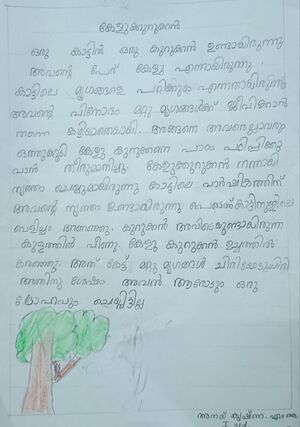 കേളുക്കുറുക്കൻ
ഒരു കാട്ടിൽ ഒരു കുറുക്കൻ ഉണ്ടായിരുന്നു
അവന്റെ പേര് കേളു എന്നായിരുന്നു
കാട്ടിലെ മൃഗങ്ങളെ പറ്റിക്കുക എന്നതായിരുന്നു
അവന്റെ വിനോദം മറ്റു മൃഗങ്ങൾക്ക് ജീവിക്കാൻ
തന്നെ കഴിയാതെയായി. അങ്ങനെ അവരെല്ലാവരും
ഒത്തുകൂടി കേളു കുറുക്കനെ പാഠം പഠിപ്പിക്കു
വാൻ തീരുമാനിച്ചു. കേളുക്കുറുക്കൻ നന്നായി
നൃത്തം ചെയ്യുമായിരുന്നു കാട്ടിലെ വാർഷികത്തിന്
അവന്റെ നൃത്തം ഉണ്ടായിരുന്നു പെട്ടെന്ന്
വെളിച്ചം അണഞ്ഞു. കുറുക്കൻ അവിടെയുണ്ടായിരുന്ന
കുളത്തിൽ വീണു. കേളു കുറുക്കൻ ഉച്ചത്തിൽ
കരഞ്ഞു. അത് കേട്ട് മറ്റു മൃഗങ്ങൾ ചിരിയോടുചിരി
അതിനു ശേഷം അവൻ ആരോടും ഒരു
ദ്രോഹവും ചെയ്തിട്ടില്ല
അനയ് കൃഷ്ണ. എം കെ